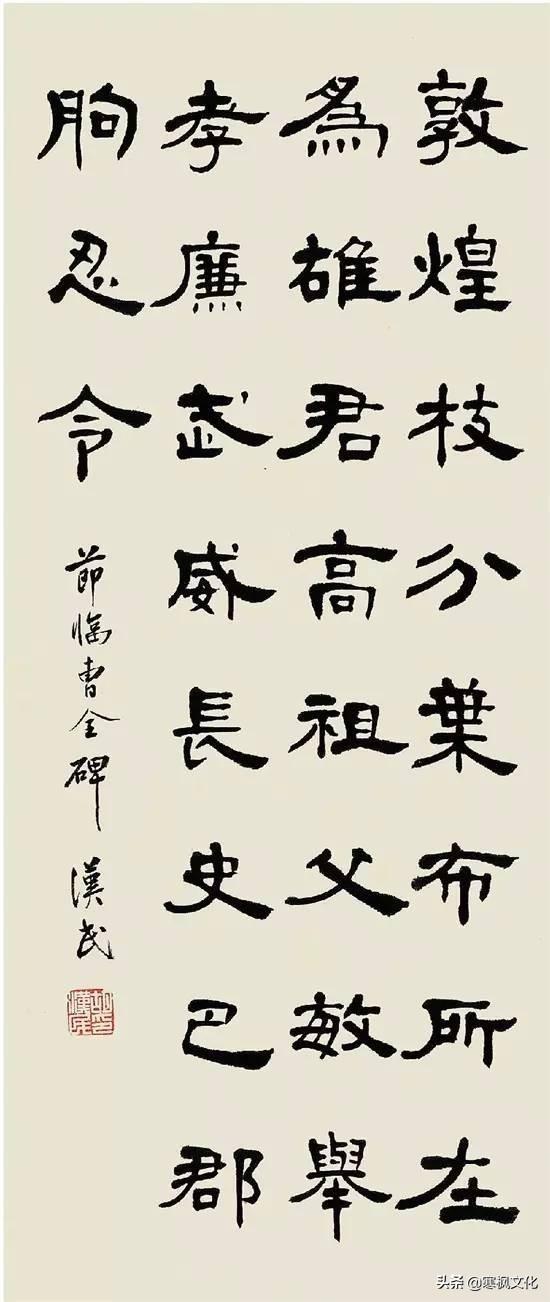 敦煌枝分葉布所在
為雄君高祖父敏舉
孝廉武威長史巴郡
朐忍令
節臨曹全碑 漢民
胡漢民印
头条@寒枫文化